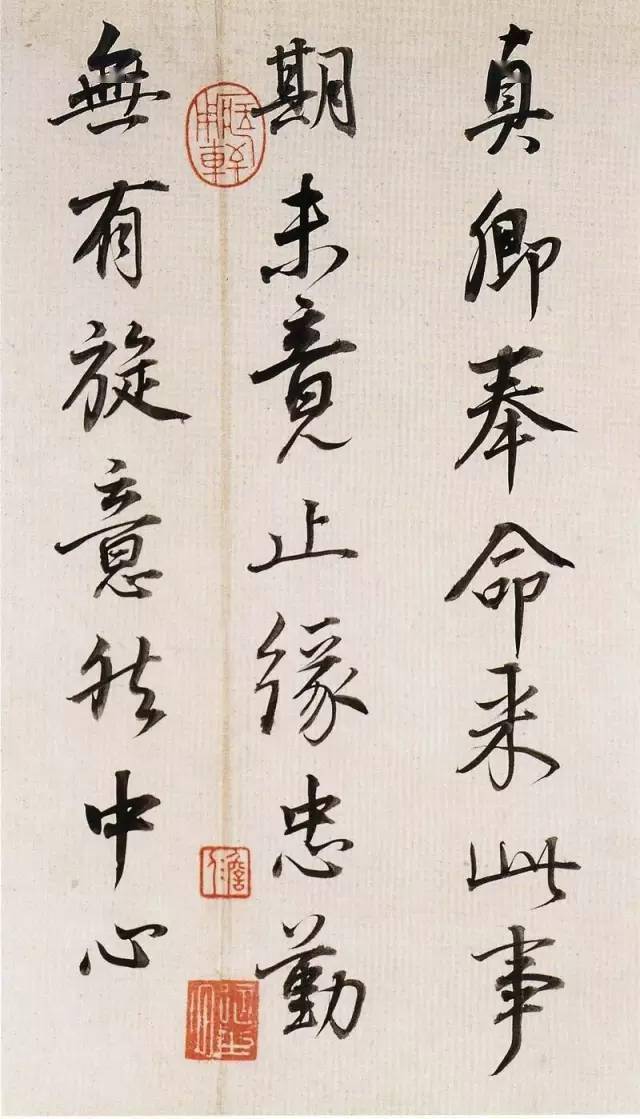 真卿奉命來此事
期未竟止緣忠勤
無有旋意然中心